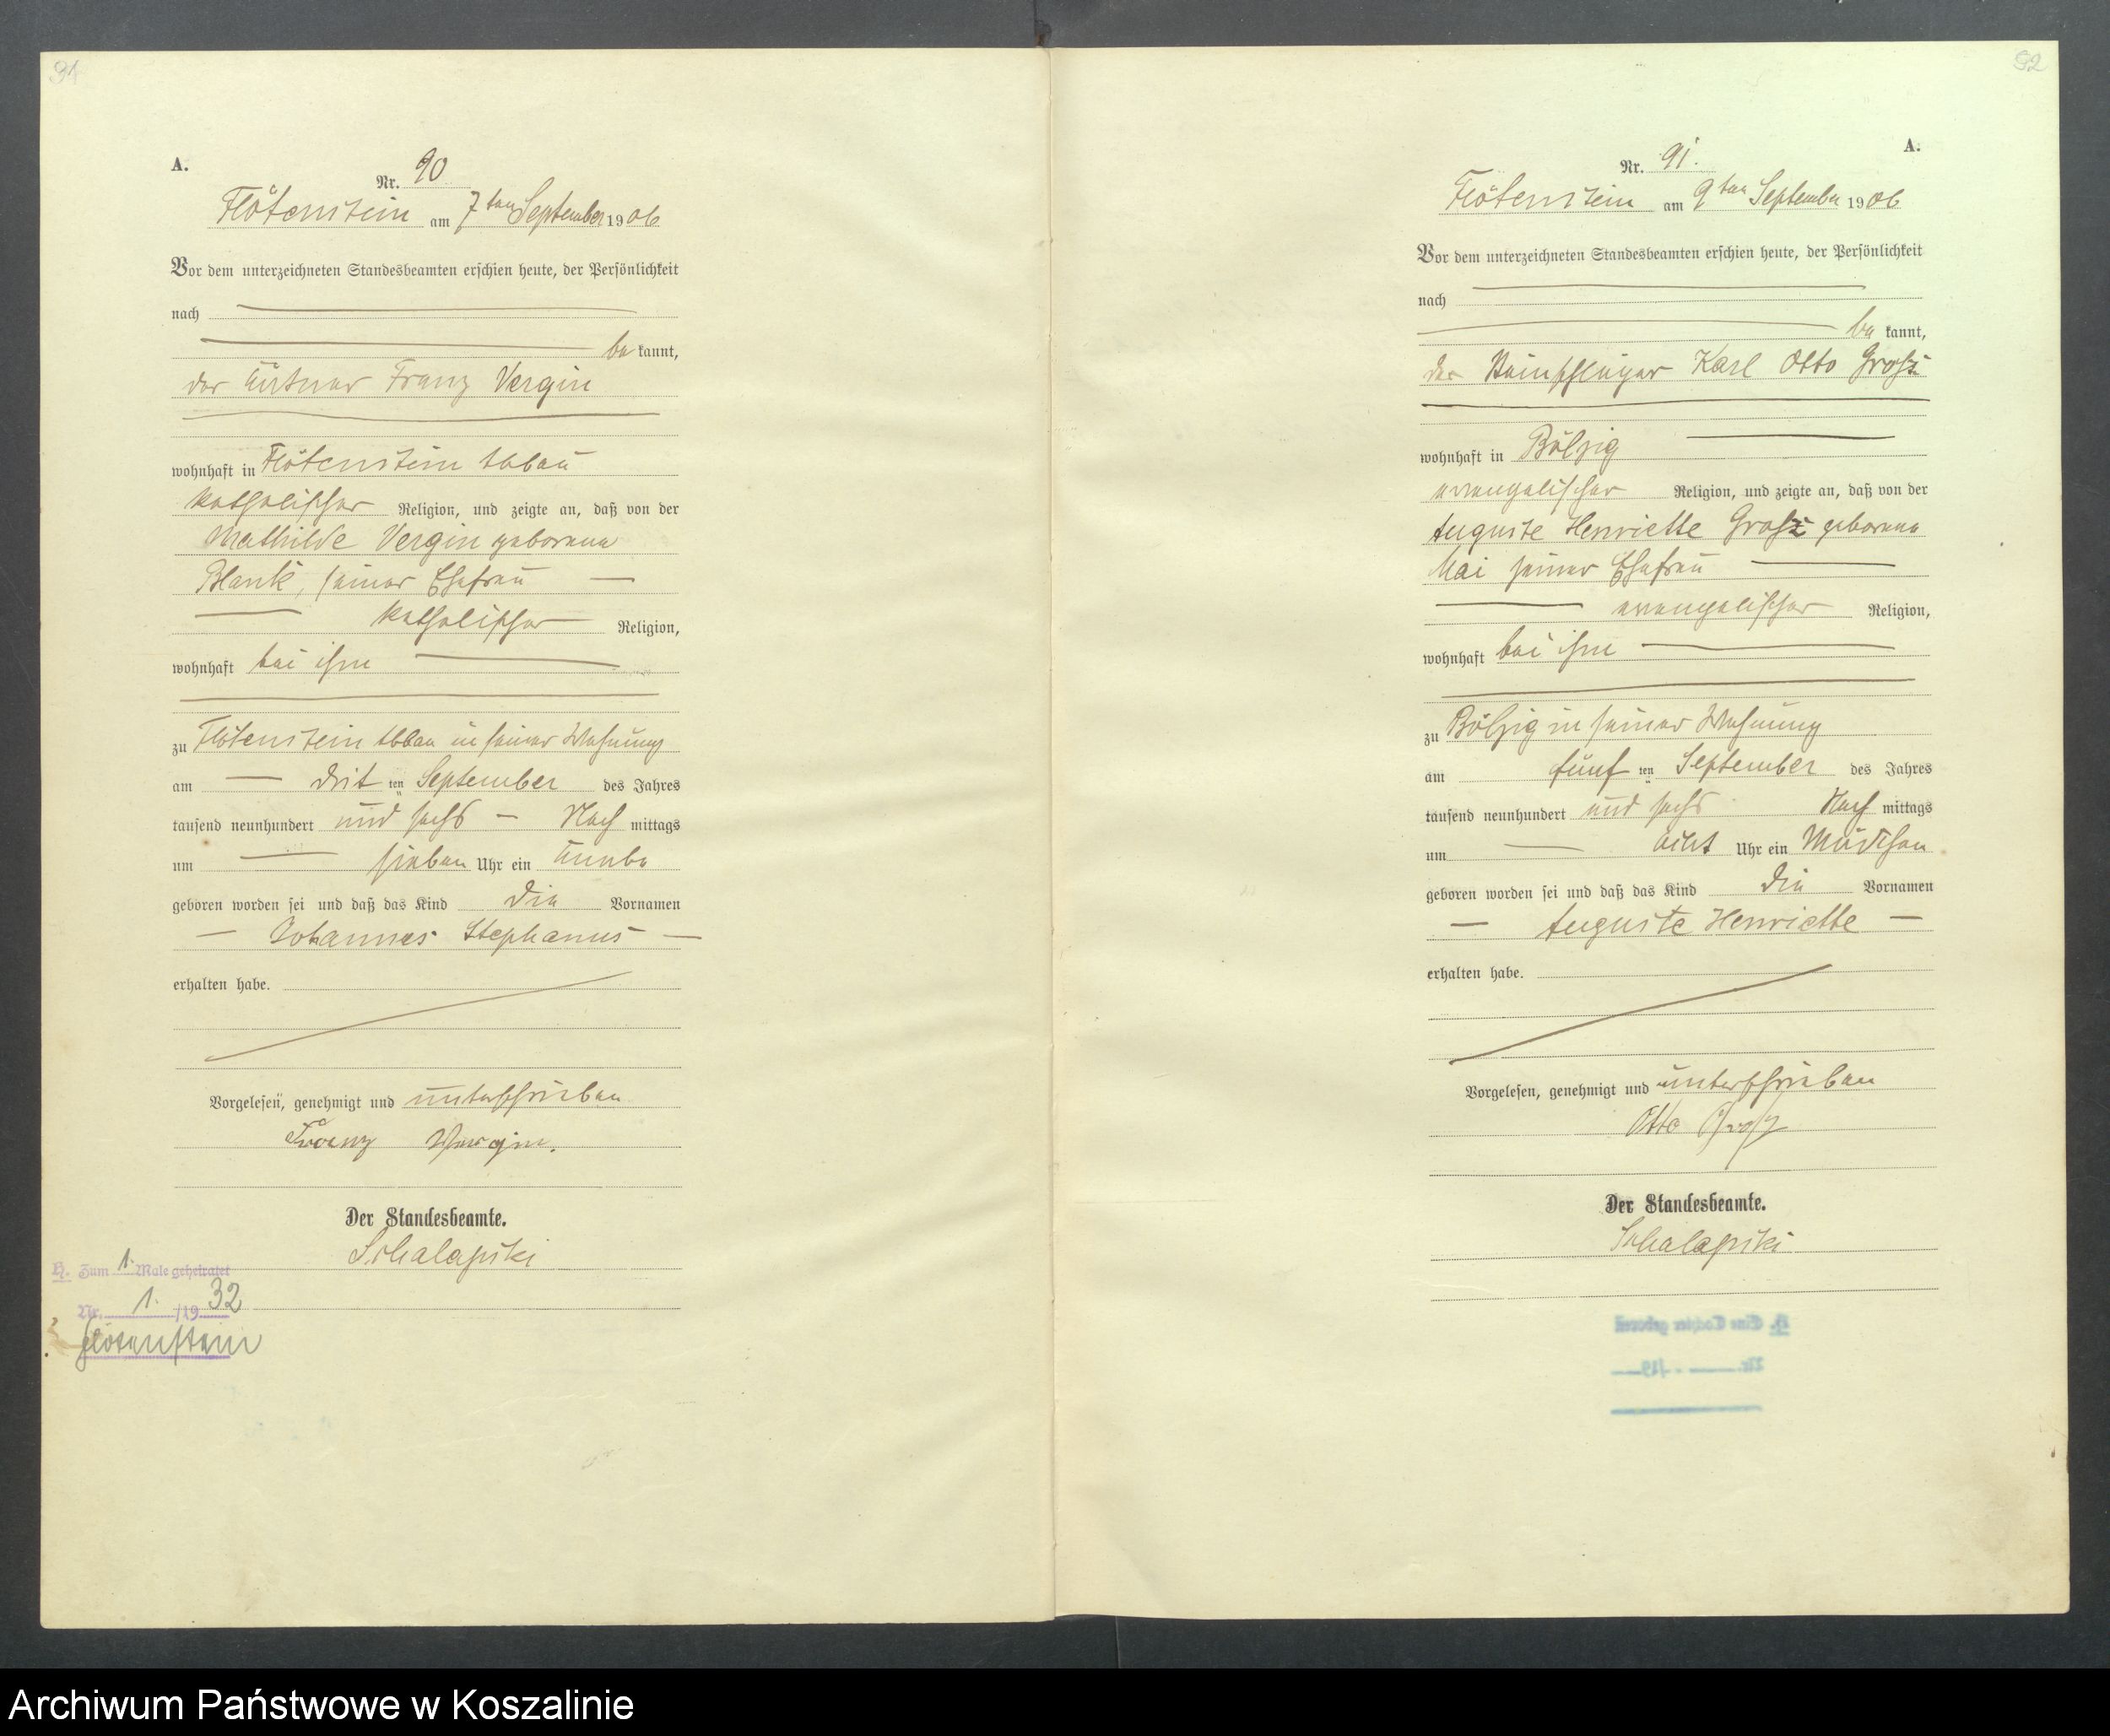 91
A.
Nr. 90
Flötenstein am 7ten September 1906
Vor dem unterzeichneten Standesbeamten erschien heute, der Persönlichkeit
nach
be kannt,
der Franz Vergin
wohnhaft in Flötenstein Abbau
katholischer Religion, und zeigte an, daß von der
Mathilde Vergin geborene
Blank, seiner Ehefrau
katholischer Religion,
wohnhaft bei ihm
zu Flötenstein Abbau in seiner Wohnung
am dritten September des Jahres
tausend neunhundert und sechs Nachmittags
um sieben Uhr ein Knabe
geboren worden sei und daß das Kind die Vornamen
Johannes Stephanus
erhalten habe.
Vorgelesen, genehmigt und unterschrieben
Franz Vergin.
Der Standesbeamte.
Schalapski
H. Zum 1. Male geheiratet
Nr. 1. /1932
Flötenstein
92
A.
Nr. 91.
Flötenstein am 9ten September 1906
Vor dem unterzeichneten Standesbeamten erschien heute, der Persönlichkeit
nach
be kannt,
der Steinschläger Karl Otto Groß
wohnhaft in Bölzig
evangelischer Religion, und zeigte an, daß von der
Auguste Henriette Groß geborene
Mai seiner Ehefrau
evangelischer Religion,
wohnhaft bei ihm
zu Bölzig in seiner Wohnung
am fünften September des Jahres
tausend neunhundert und sechs Nachmittags
um acht Uhr ein Mädchen
geboren worden sei und daß das Kind die Vornamen
Auguste Henriette
erhalten habe.
Vorgelesen, genehmigt und unterschrieben
Otto Groß
Der Standesbeamte.
Schalapski
H. Eine Tochter geboren
Nr. /19
Archiwum Państwowe w Koszalinie